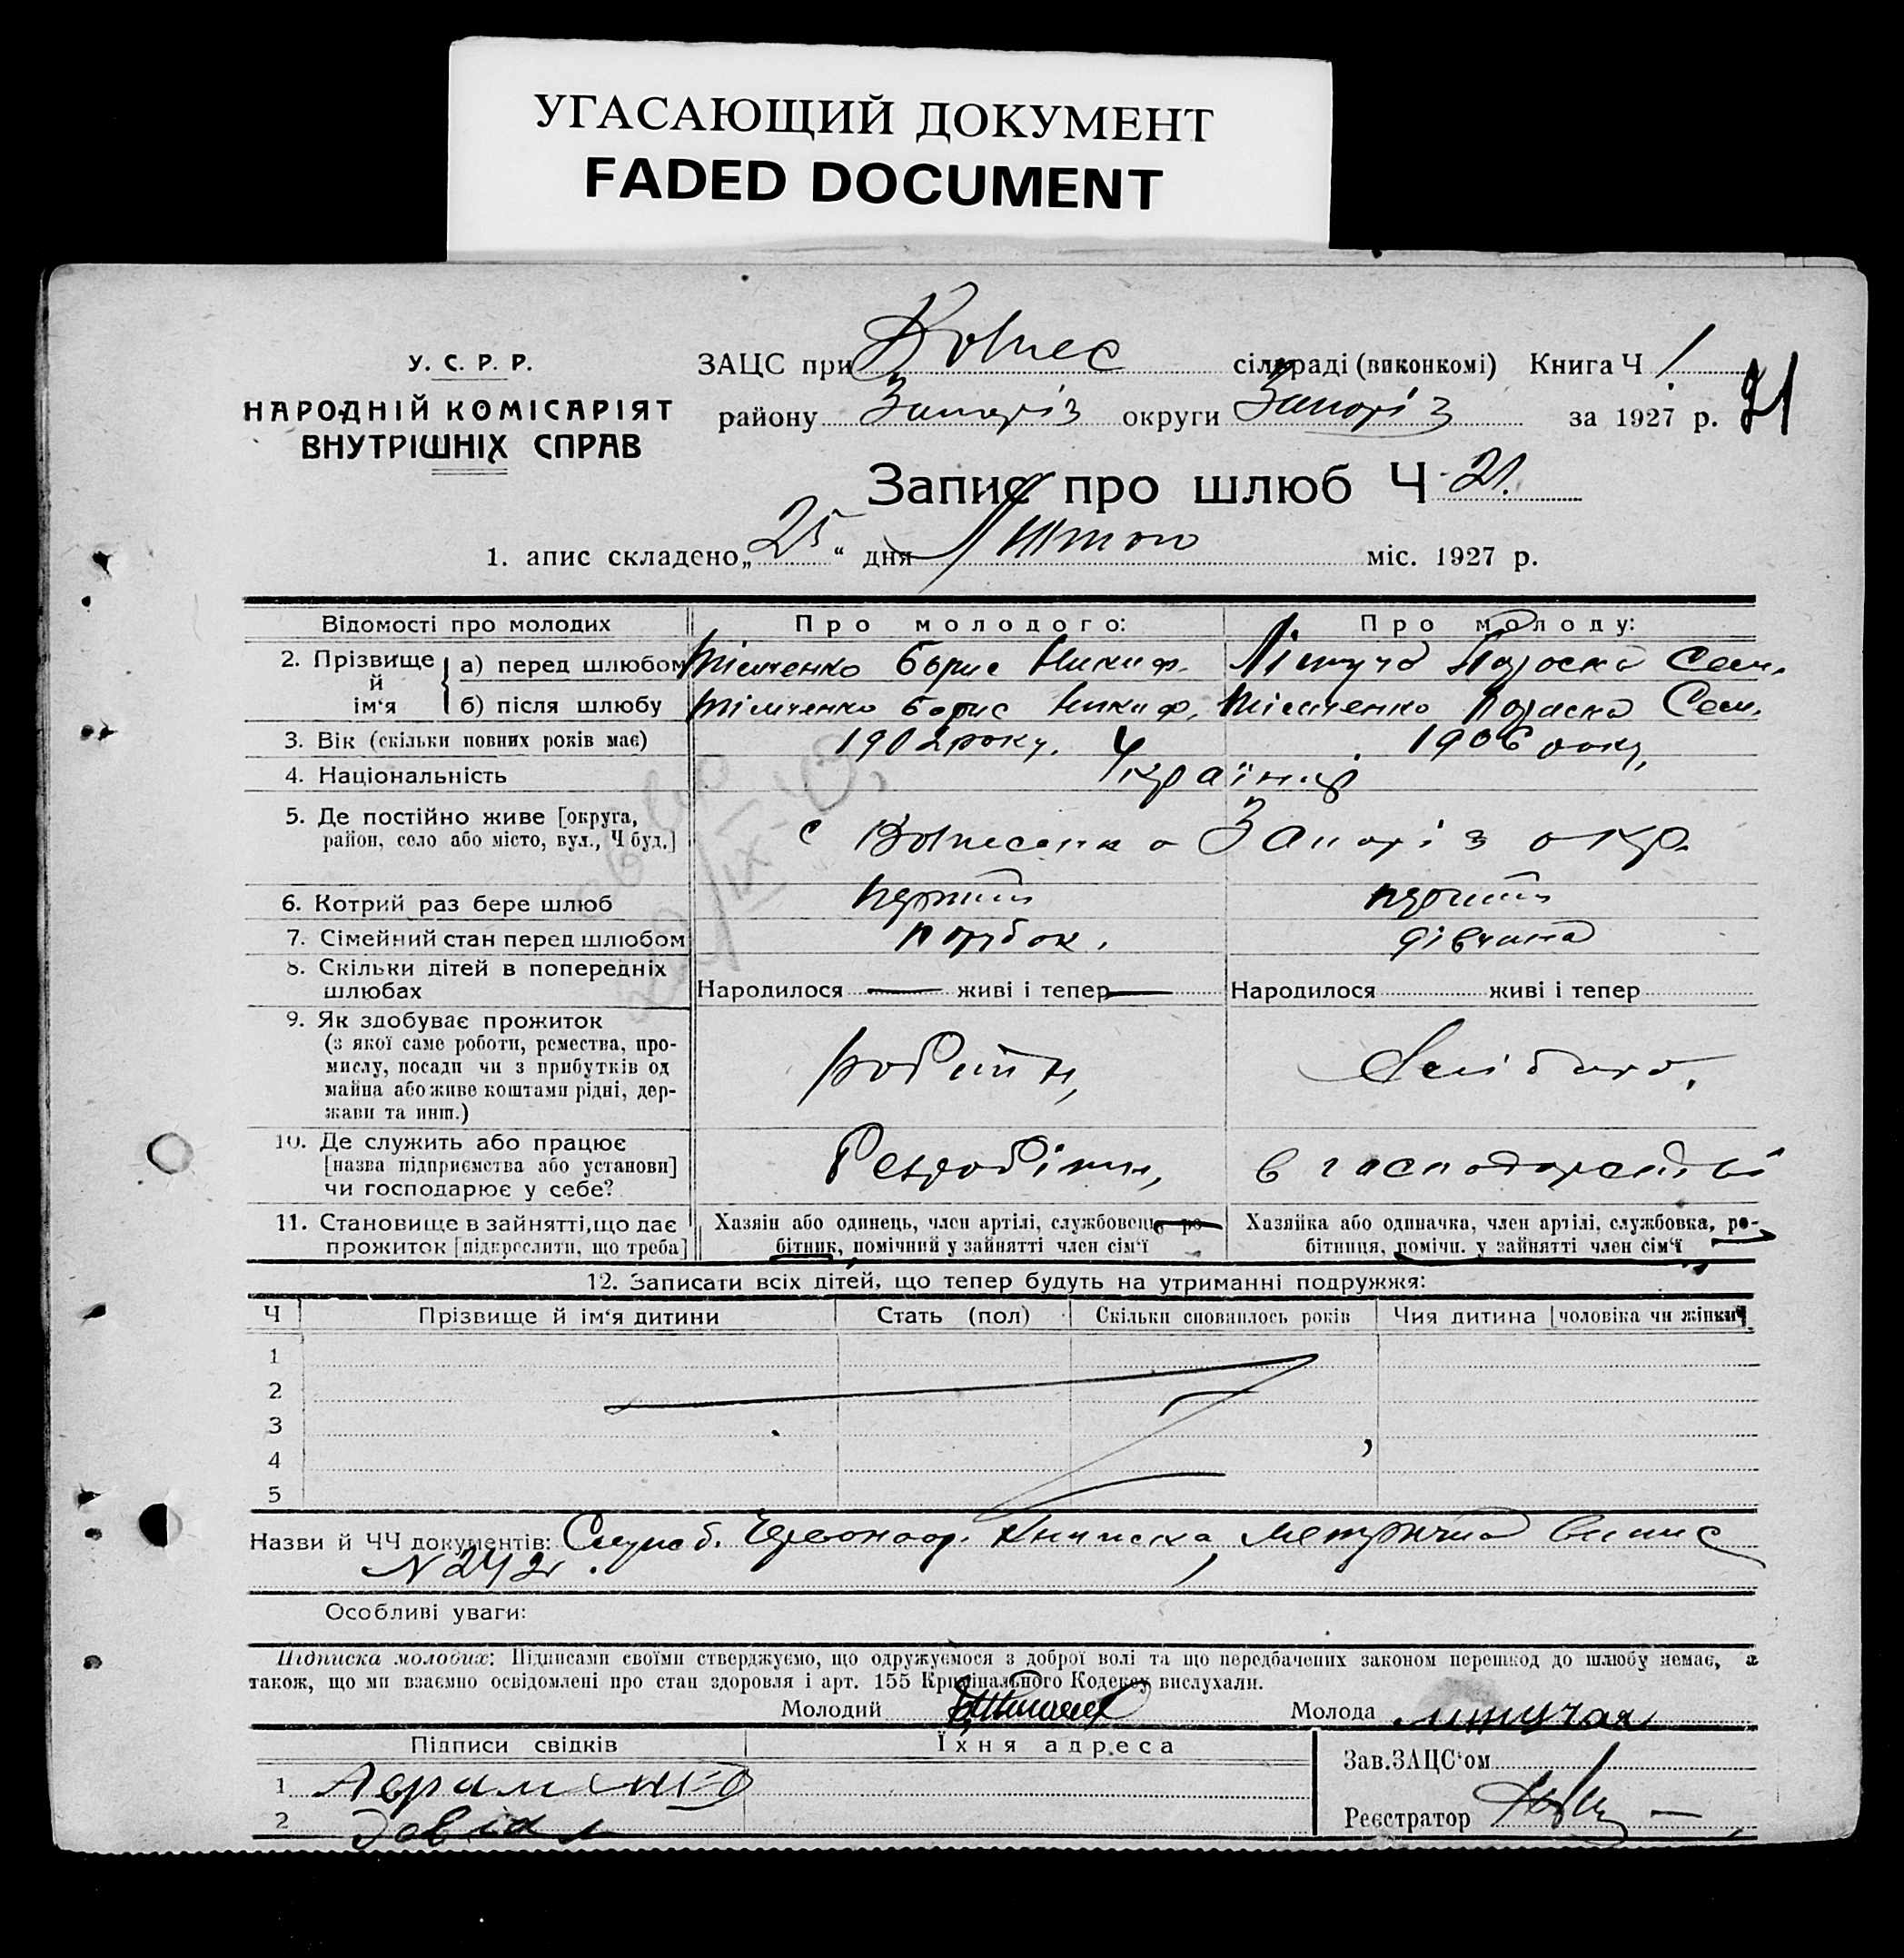 УГАСАЮЩИЙ ДОКУМЕНТ
FADED DOCUMENT
У. С. Р. Р.
НАРОДНІЙ КОМІСАРІЯТ
ВНУТРІШНІХ СПРАВ
ЗАЦС при Вознес сільраді (виконкомі) Книга Ч 1
району Запоріз округи Запоріз за 1927 р. 21
Запис про шлюб Ч 21.
1. апис складено „25“ дня Лютого міс. 1927 р.
Відомості про молодих Про молодого: Про молоду:
2. Прізвище й ім‘я а) перед шлюбом Тімченко Борис Никиф. Параска Сем.
б) після шлюбу Тімченко Борис Никиф. Тімченко Параска Сем.
3. Вік (скільки повних років має) 1902 року. 1906 року,
4. Національність Україців
5. Де постійно живе [округа,
район, село або місто, вул., Ч буд.] с Вознесенка Запоріз окр.
6. Котрий раз бере шлюб перший перший
7. Сімейний стан перед шлюбом парубок. дівчина
8. Скільки дітей в попередніх
шлюбах Народилося — живі і тепер — Народилося живі і тепер
9. Як здобуває прожиток
(з якої саме роботи, ремества, про-
мислу, посади чи з прибутків од
майна або живе коштами рідні, дер-
жави та инш.)
робітн,
10. Де служить або працює
[назва підприємства або установи]
чи господарює у себе?
в господарстві
11. Становище в зайнятті, що дає
прожиток [підкреслити, що треба]
Хазяїн або одинець, член артілі, службовець, ро-
бітник, помічний у зайнятті член сім‘ї
Хазяйка або одиначка, член артілі, службовка, ро-
бітниця, помічн. у зайнятті член сім‘ї
12. Записати всіх дітей, що тепер будуть на утриманні подружжя:
Ч Прізвище й ім‘я дитини Стать (пол) Скільки сповнилось років Чия дитина [чоловіка чи жінки]
1
2
3
4
5
Назви й ЧЧ документів: Служб. Червоноар. Книжка, метрична випис
N 242.
Особливі уваги:
Підписка молодих: Підписами своїми стверджуємо, що одружуємося з доброї волі та що передбачених законом перешкод до шлюбу немає, а
також, що ми взаємно освідомлені про стан здоровля і арт. 155 Кримінального Кодексу вислухали.
Молодий Молода
Підписи свідків Їхня адреса
Зав. ЗАЦС‘ом
1
2
Реєстратор